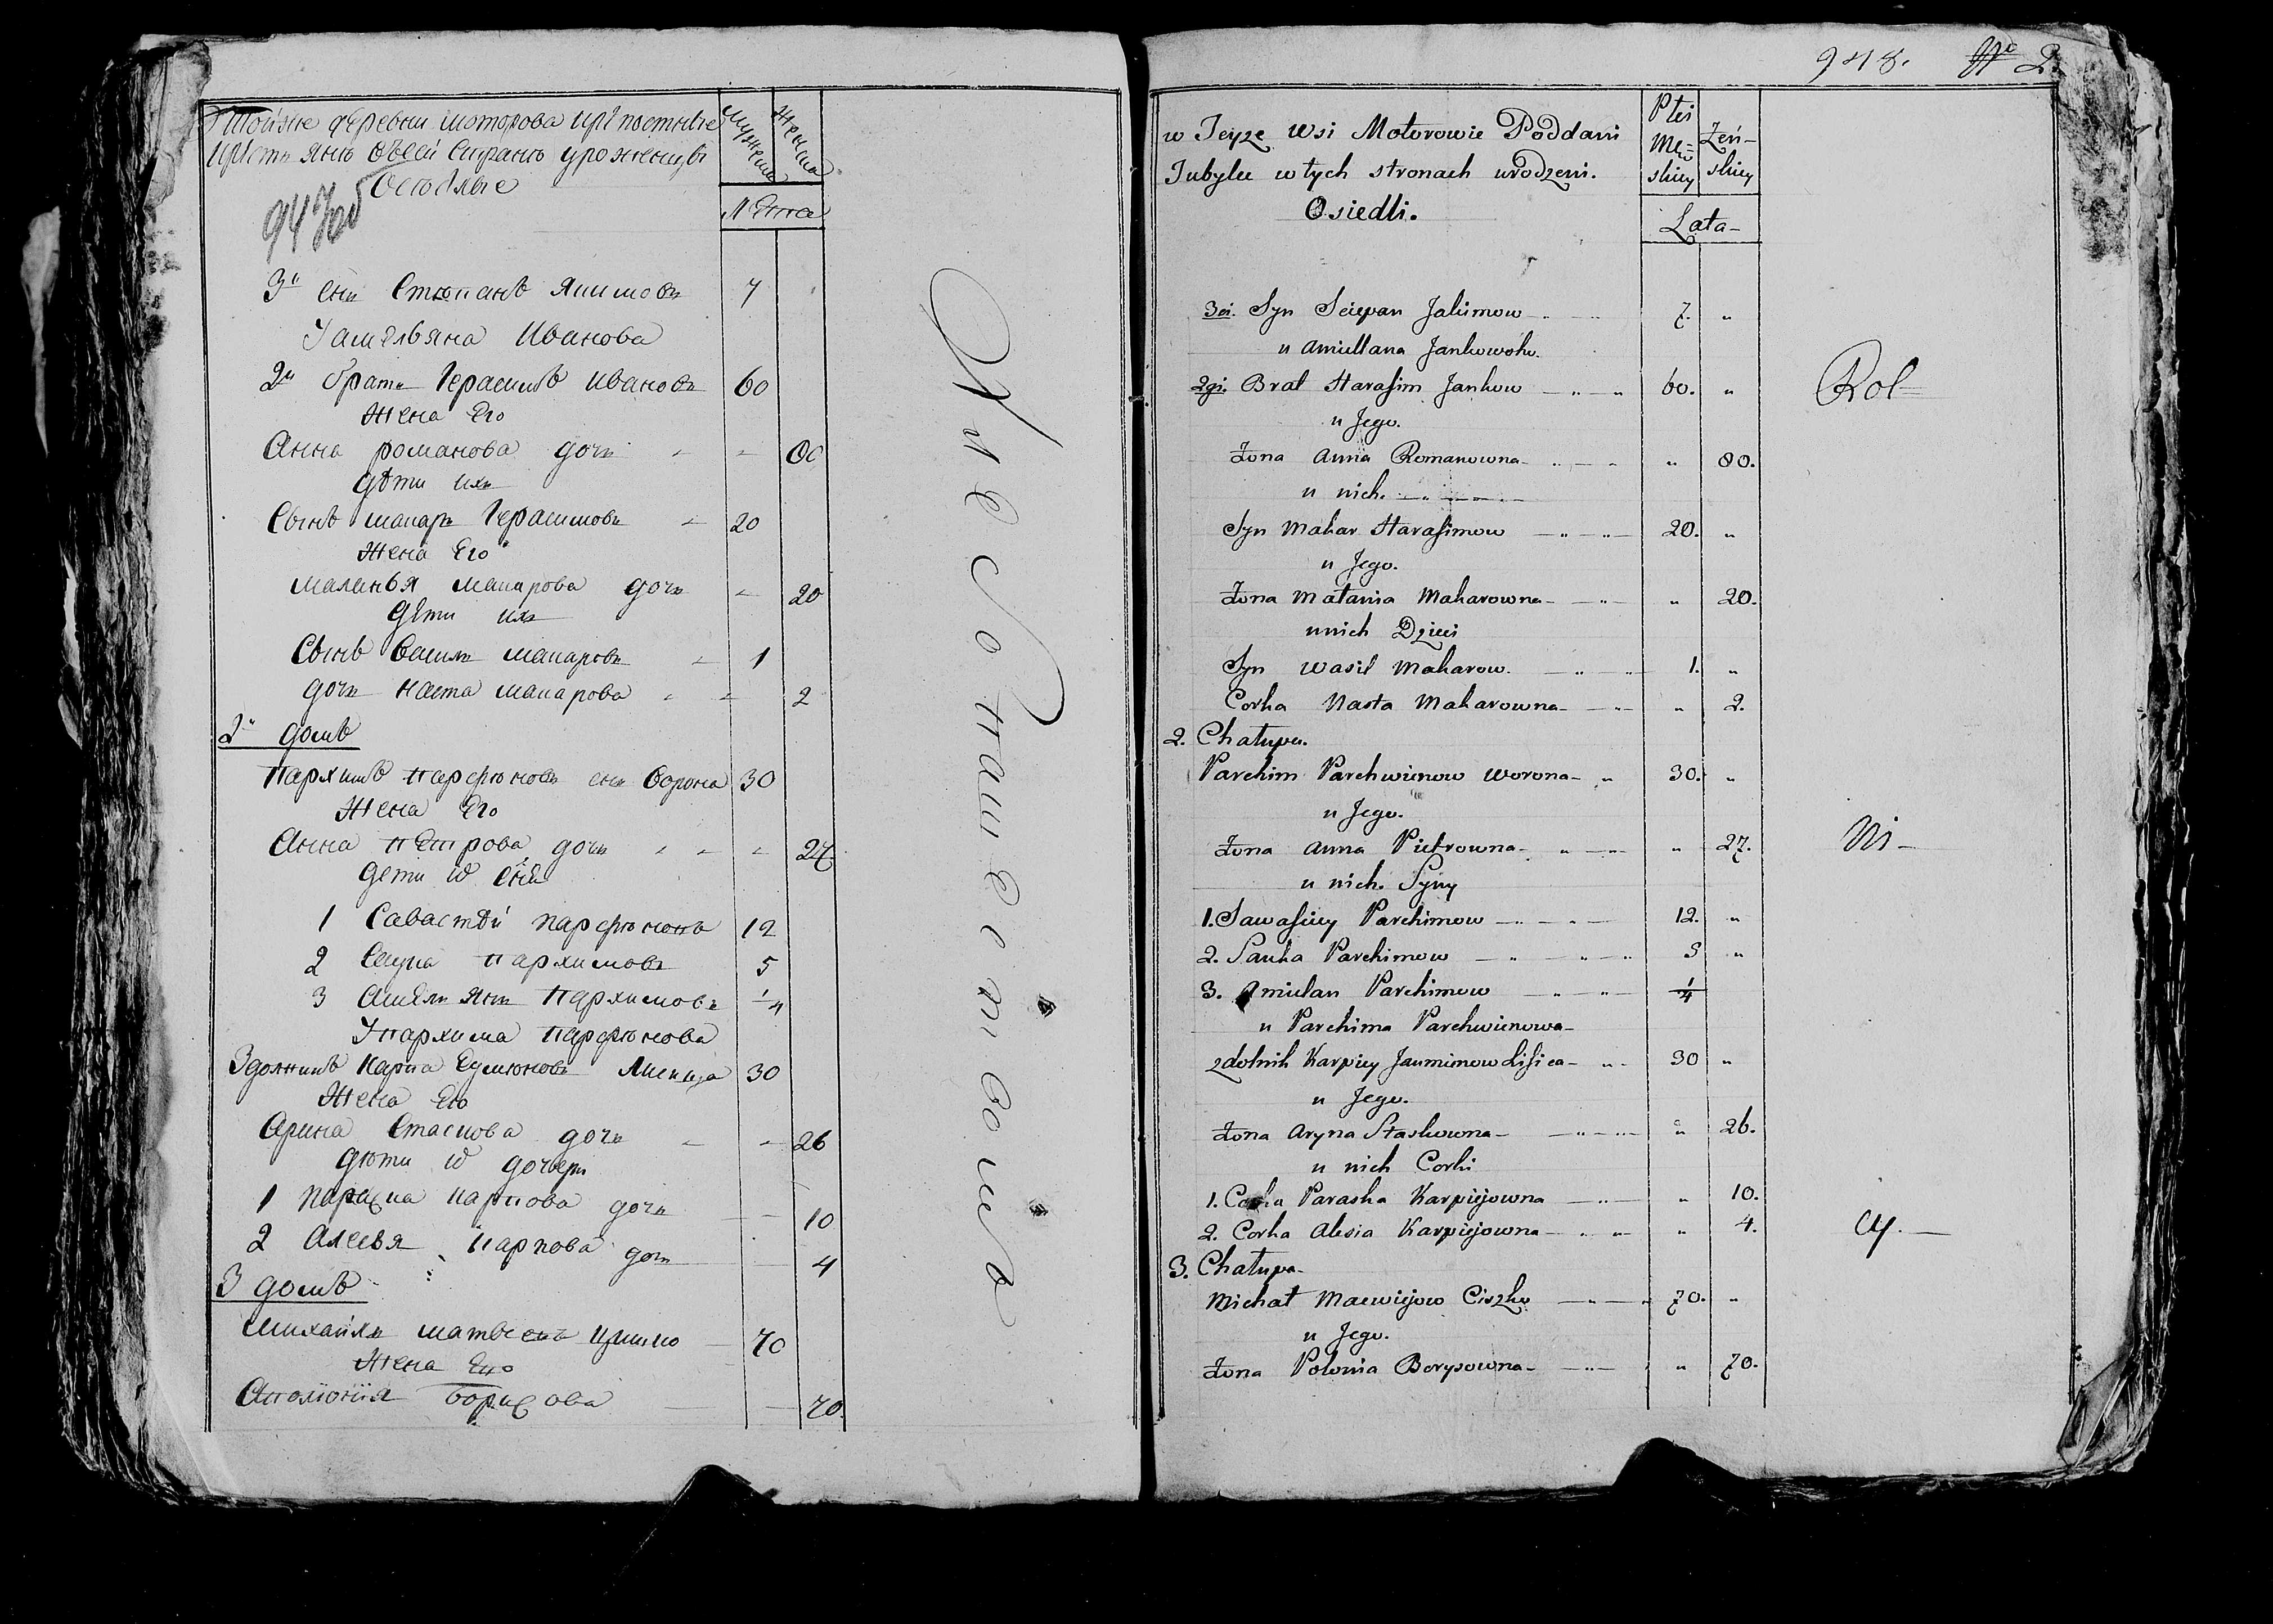 Тойже деревни моторова крѣпостные
крѣстьянъ въсей странъ уроженцы
Оседлые
мужеска
женска
Лѣта
947об
3й сынъ Стюпанъ Якимовъ 7
У амельяна Иванова
2й братъ Герасимъ Ивановъ 60
Жена Его
Анна романова дочь 80
дѣти ихъ
Сынъ макаръ Герасимовъ 20
Жена Его
маланья макарова дочь 20
дѣти ихъ
Сынъ Василь макаровъ 1
дочь наста макарова 2
2й домъ
Пархимъ парфюновъ сынъ Ворона 30
Жена Его
Анна петрова дочь 27
дети сыны
1 Савастѣй парфюновъ 12
2 Саука пархимовъ 5
3 Амельянъ пархимовъ 1/4
У пархима парфюнова
Здолникъ Карпа Еумюновъ Лисица 30
Жена Его
Арина Стаскова дочь 26
дюти дочери
1 параска карпова дочь 10
2 Алесья карпова дочь 4
3 домъ
Михайла матвеевъ цишко 70
Жена Его
Аполюнiя борисова 70
948. № 2.
w Teyże wsi Motorowie Poddani
Tubylce w tych stronach urodzeni.
Osiedli.
Płci
Mę=
skiey
Żeń-
skiey
Lata-
3ci. Syn Sciepan Jakimow 7. "
u Amiellana Jankowoho.
2gi. Brat Harasim Jankow 60. "
u Jego.
Żona Anna Romanowna " 80.
u nich.
Syn Makar Harasimow 20. "
u Jego.
Żona Małania Makarowna " 20.
u nich Dzieci
Syn Wasil Makarow. 1. "
Corka Nasta Makarowna " 2.
2. Chałupa.
Parchim Parchwienow Worona 30. "
u Jego.
Żona Anna Pietrowna " 27.
u nich. Syny
1. Sawasciey Parchimow 12. "
2. Sauka Parchimow 5 "
3. Amielan Parchimow 1/4
u Parchima Parchwienowa
zdolnik Karpiey Jaumienow Lisica 30 "
u Jego.
Żona Aryna Staskowna " 26.
u nich Corki
1. Corka Paraska Karpiejowna " 10.
2. Corka Alesia Karpiejowna " 4.
3. Chałupa
Michał Macwiejow Ciszko 70. "
u Jego.
Żona Polonia Borysowna " 70.
Rol
ni
cy.